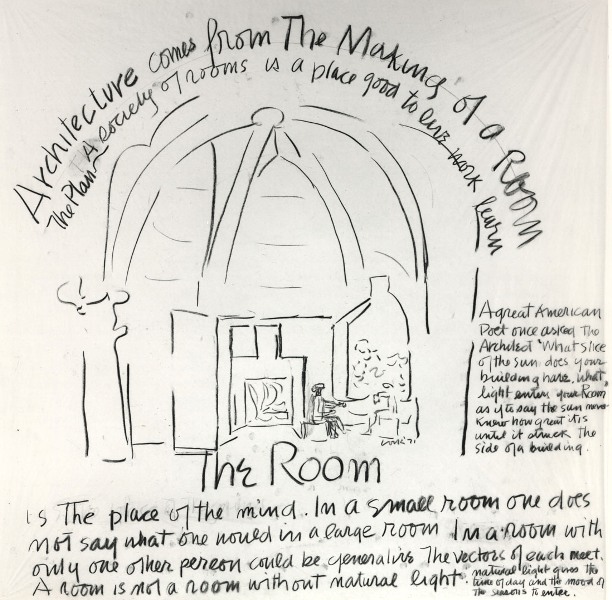 Architecture comes from The Making of a Room
The Plan – A society of rooms is a place good to live work learn
A great American
Poet once asked the
Architect 'What slice
of the sun does your
building have, what
light enters your Room
as if to say the sun never
knew how great it is
until it struck the
side of a building.
The Room
is The place of the mind. In a small room one does
not say what one would in a large room In a room with
only one other person could be generative The vectors of each meet.
A room is not a room without natural light.
natural light gives the
time of day and the mood of
the seasons to enter.